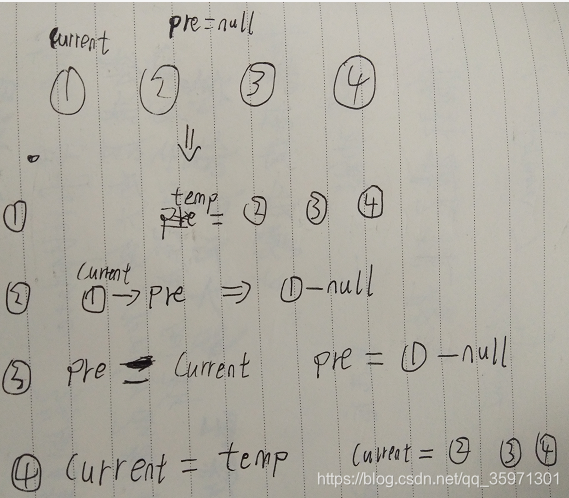 current pre=null
① ② ③ ④
⇓
① temp = ② ③ ④
② current ① → pre ⇒ ①-null
③ pre = current pre = ①-null
④ current = temp current = ② ③ ④
https://blog.csdn.net/qq_35971301